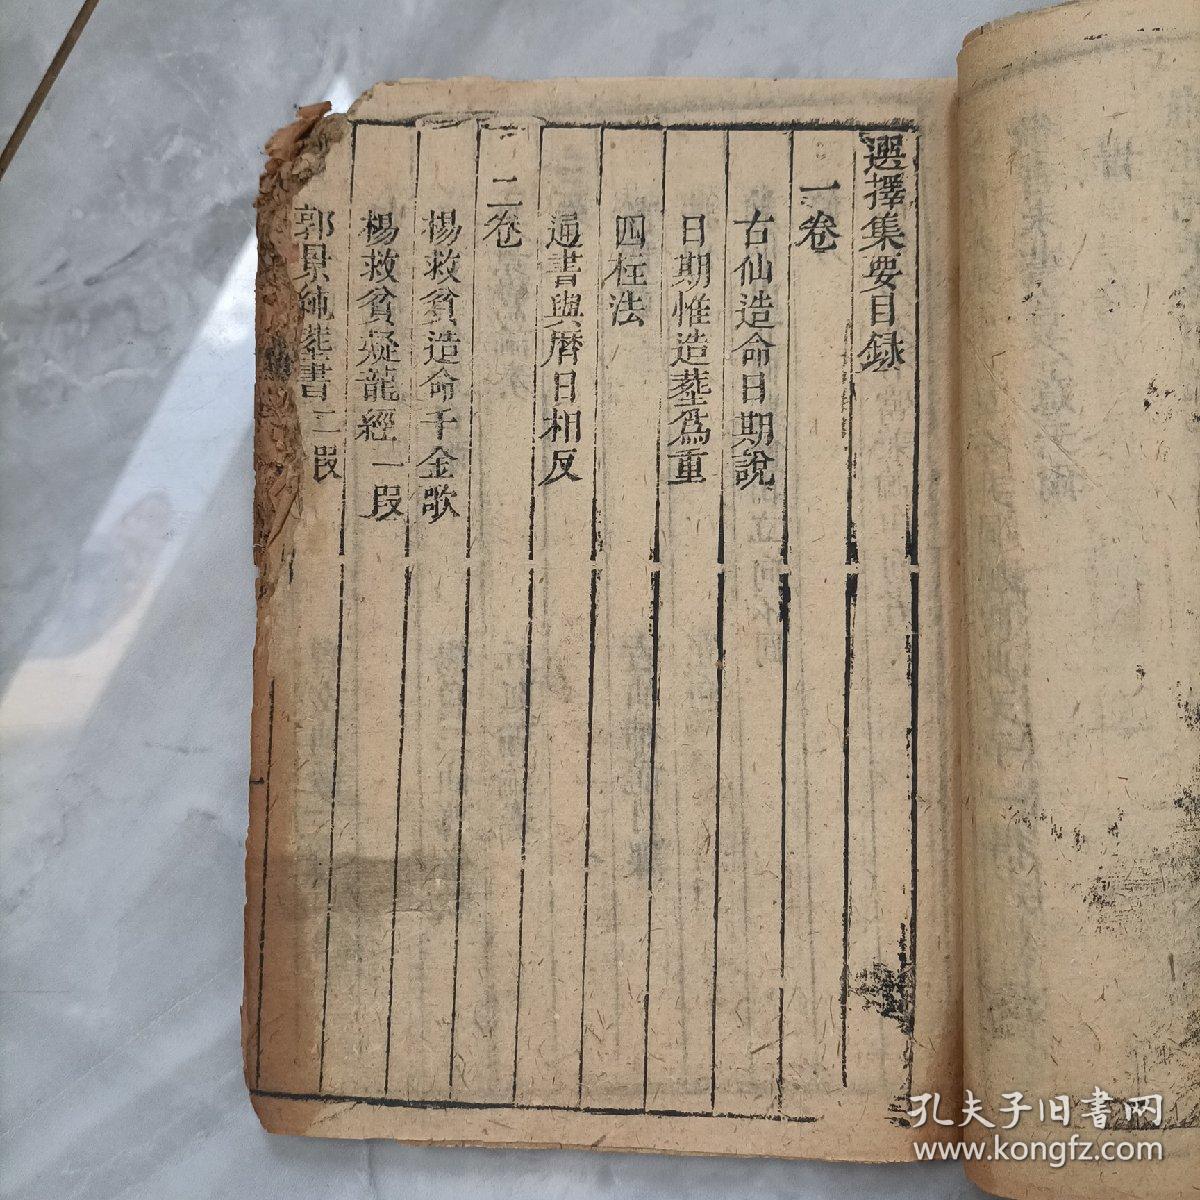 選擇集要目録
一卷
古仙造命日期說
日期惟造塟爲重
四柱法
通書與曆日相反
二卷
楊救貧造命千金歌
楊救貧疑龍經一叚
郭景純塟書二叚
孔夫子旧书网
www.kongfz.com